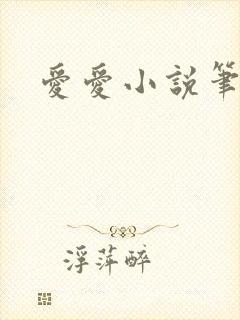 愛愛小説筆
浮萍醉